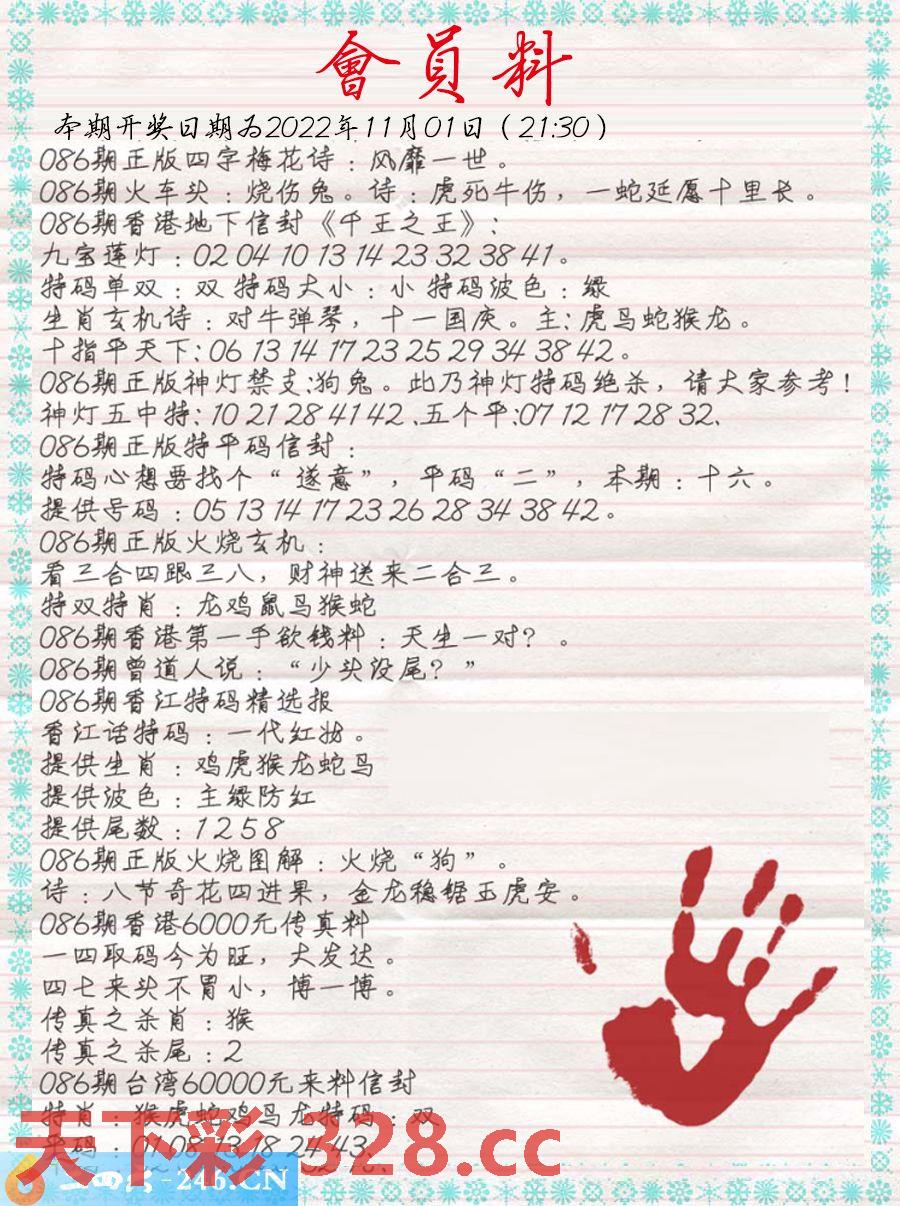 會員料
本期开奖日期为2022年11月01日（21:30）
086期正版四字梅花诗：风靡一世。
086期火车头：烧伤兔。诗：虎死牛伤，一蛇延愿十里长。
086期香港地下信封《千王之王》：
九宝莲灯：02 04 10 13 14 23 32 38 41。
特码单双：双 特码大小：小 特码波色：绿
生肖玄机诗：对牛弹琴，十一国庆。主：虎鸟蛇猴龙。
十指平天下：06 13 14 17 23 25 29 34 38 42。
086期正版神灯禁支：狗兔。此乃神灯特码绝杀，请大家参考！
神灯五中特：10 21 28 41 42、五个平：07 12 17 28 32、
086期正版特平码信封：
特码心想要找个“遂意”，平码“二”，本期：十六。
提供号码：05 13 14 17 23 26 28 34 38 42。
086期正版火烧玄机：
看三合四跟三八，财神送来二合三。
特双特肖：龙鸡鼠马猴蛇
086期香港第一手欲钱料：天生一对？。
086期曾道人说：“少头没尾？”
086期香江特码精选报
香江话特码：一代红妆。
提供生肖：鸡虎猴龙蛇马
提供波色：主绿防红
提供尾数：1 2 5 8
086期正版火烧图解：火烧“狗”。
诗：八节奇花四进果，金龙稳锯玉虎安。
086期香港6000元传真料
一四取码今为旺，大发达。
四七来头不冒小，博一博。
传真之杀肖：猴
传真之杀尾：2
086期台湾60000元来料信封
特肖：猴虎蛇鸡马龙特码：双
01 08 13 18 24 43、
天下彩 328.cc
-246.CN